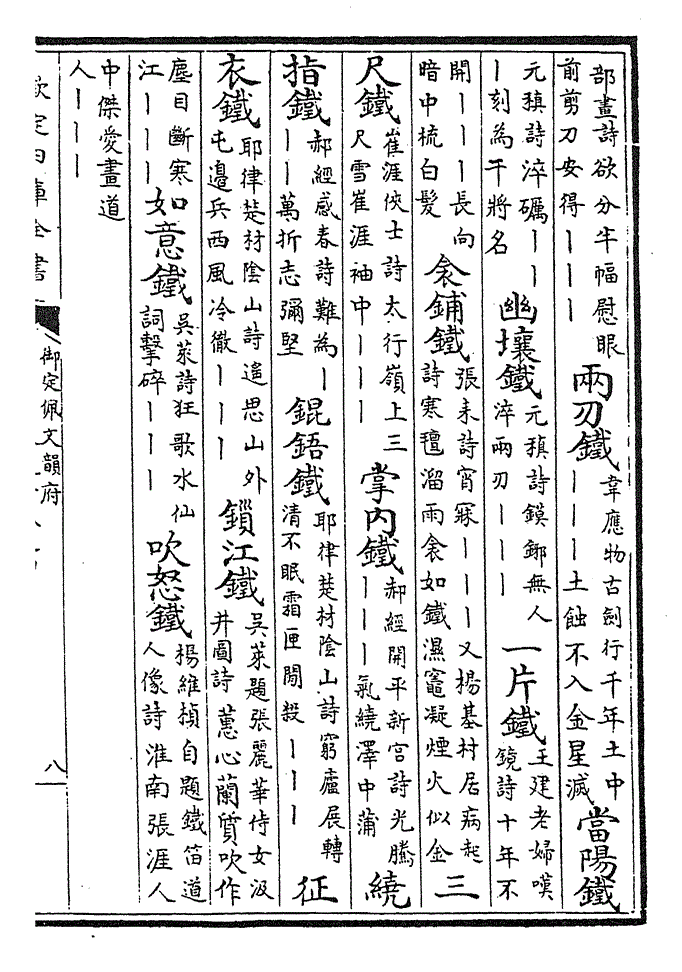 部畫詩欲分半幅慰眼前剪刀安得｜｜｜兩刃鐵韋應物古劍行千年土中｜｜｜土蝕不入金星滅當陽鐵
元稹詩淬礪｜｜｜刻為干將名幽壤鐵元稹詩鏌鋣無人淬兩刃｜｜｜一片鐵王建老婦嘆鏡詩十年不
開｜｜｜長向暗中梳白髮衾鋪鐵張耒詩宵寐｜｜｜又楊基村居病起詩寒氊溜雨衾如鐵濕竈凝煙火似金三
尺鐵崔涯俠士詩太行嶺上三尺雪崔涯袖中｜｜｜掌内鐵郝經開平新宮詩光騰｜｜｜氣繞澤中蒲繞
指鐵郝經感春詩難為｜｜｜萬折志彌堅錕鋙鐵耶律楚材陰山詩窮廬展轉清不眠霜匣閒殺｜｜｜征
衣鐵耶律楚材陰山詩遙思山外屯邊兵西風冷徹｜｜｜鎖江鐵吳萊題張麗華侍女汲井圖詩蕙心蘭質吹作
塵目斷寒江｜｜｜如意鐵吳萊詩狂歌水仙詞擊碎｜｜｜吹怒鐵楊維楨自題鐵笛道人像詩淮南張涯人
中傑愛畫道人｜｜｜
欽定四庫全書
御定佩文韻府
八